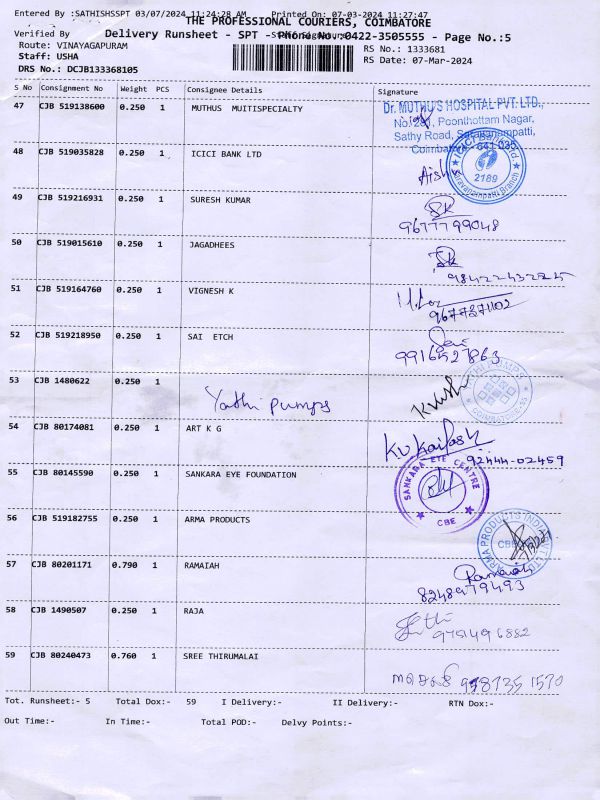 Entered By :SATHISHSSPT 03/07/2024 11:24:28 AM Printed On: 07-03-2024 11:27:47
THE PROFESSIONAL COURIERS, COIMBATORE
Verified By Delivery Runsheet - SPT - Phone No.:0422-3505555 - Page No.:5
Route: VINAYAGAPURAM RS No.: 1333681
Staff: USHA RS Date: 07-Mar-2024
DRS No.: DCJB133368105
S No Consignment No Weight PCS Consignee Details Signature
47 CJB 519138600 0.250 1 MUTHUS MUITISPECIALTY
Dr. MUTHU'S HOSPITAL PVT. LTD.,
Poonthottam Nagar,
Sathy Road, Saravanampatti,
Coimbatore - 641 035
48 CJB 519035828 0.250 1 ICICI BANK LTD
2189
Saravanampatti Branch
49 CJB 519216931 0.250 1 SURESH KUMAR
9677799048
50 CJB 519015610 0.250 1 JAGADHEES
51 CJB 519164760 0.250 1 VIGNESH K
52 CJB 519218950 0.250 1 SAI ETCH
9916527863
53 CJB 1480622 0.250 1
Yathi pumps
54 CJB 80174081 0.250 1 ART K G
92444-02459
55 CJB 80145590 0.250 1 SANKARA EYE FOUNDATION
SANKARA EYE CENTRE
CBE
56 CJB 519182755 0.250 1 ARMA PRODUCTS
57 CJB 80201171 0.790 1 RAMAIAH
Ramaiah
8248979493
58 CJB 1490507 0.250 1 RAJA
9751496882
59 CJB 80240473 0.760 1 SREE THIRUMALAI
Tot. Runsheet:- 5 Total Dox:- 59 I Delivery:- II Delivery:- RTN Dox:-
Out Time:- In Time:- Total POD:- Delvy Points:-